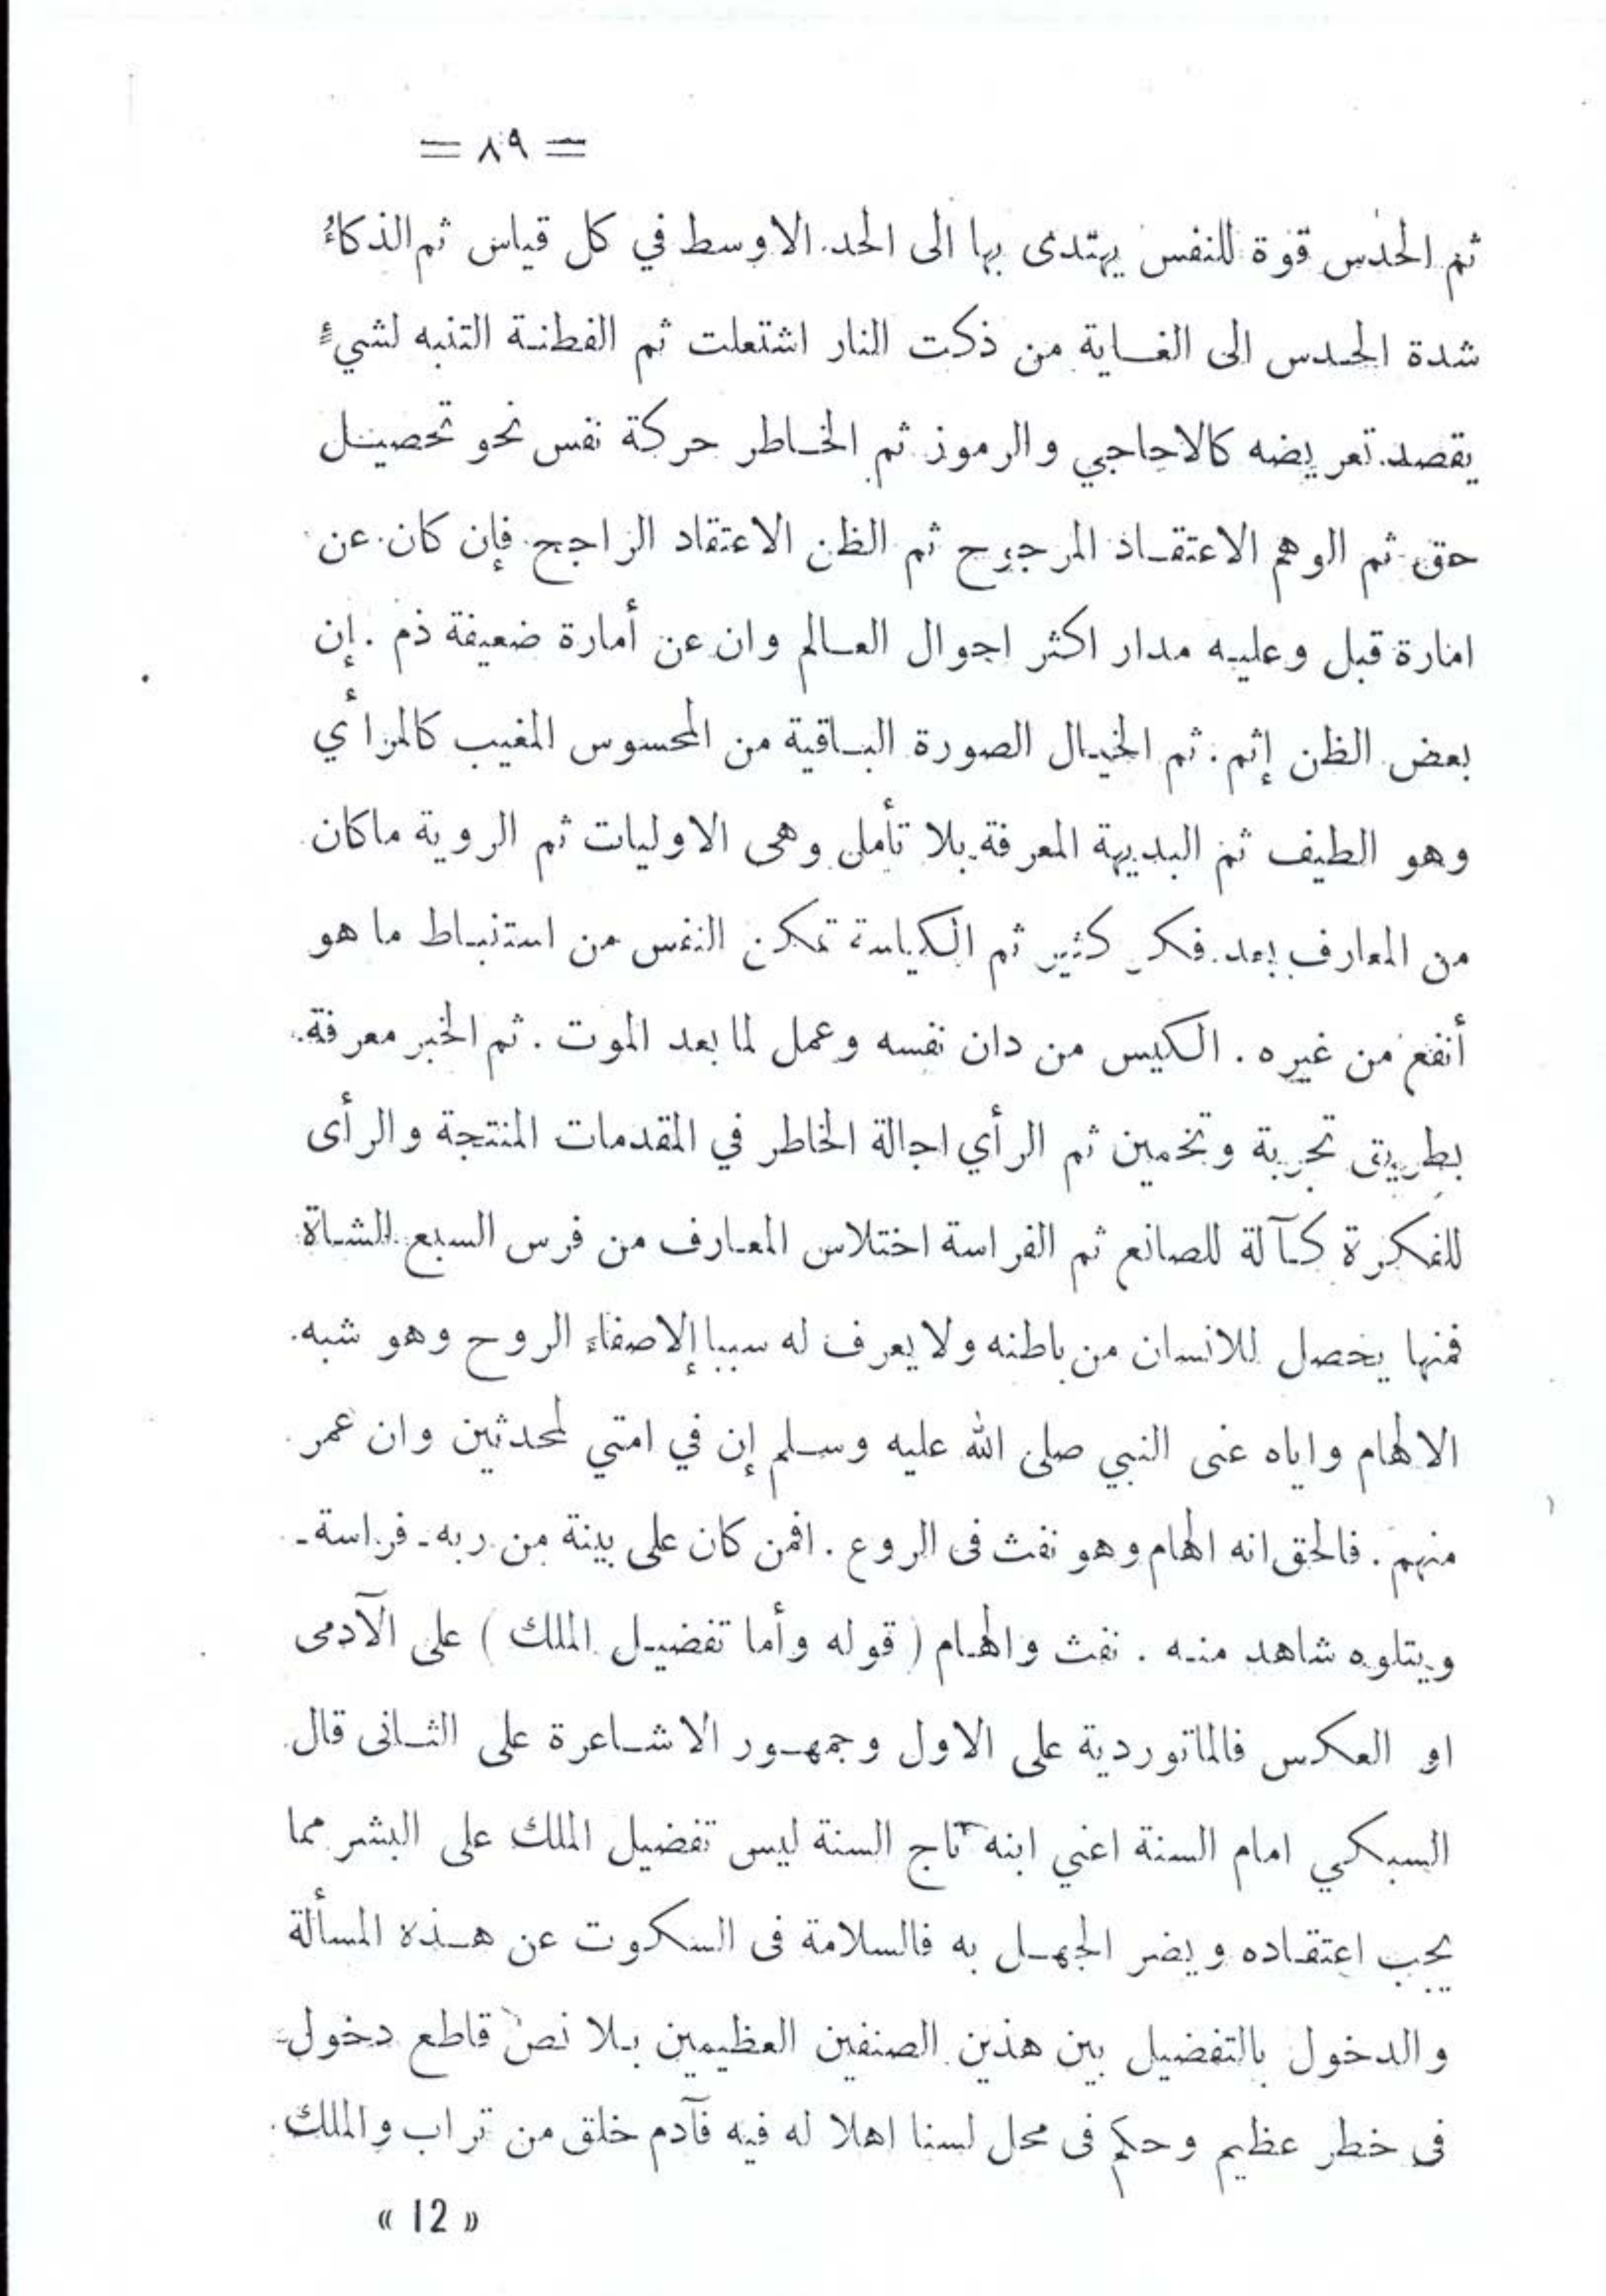 = ٨٩ =
ثم الحدس قوة للنفس يهتدى بها الى الحد الاوسط في كل قياس ثم الذكاءُ
شدة الحدس الى الغاية من ذكت النار اشتعلت ثم الفطنة التنبه لشيءٍ
يقصد تعريضه كالاحاجي والرموز ثم الخاطر حركة نفس نحو تحصيل
حق ثم الوهم الاعتقاد المرجوح ثم الظن الاعتقاد الراجح فإن كان عن
امارة قبل وعليه مدار اكثر احوال العالم وان عن أمارة ضعيفة ذم . إن
بعض الظن إثم . ثم الخيال الصورة الباقية من المحسوس المغيب كالمرأي
وهو الطيف ثم البديهة المعرفة بلا تأمل وهى الاوليات ثم الروية ماكان
من المعارف بعد فكر كثير ثم الكياسة تمكن النفس من استنباط ما هو
أنفع من غيره . الكيس من دان نفسه وعمل لما بعد الموت . ثم الخبر معرفة
بطريق تجربة وتخمين ثم الرأي اجالة الخاطر في المقدمات المنتجة والرأى
للفكرة كآلة للصانع ثم الفراسة اختلاس المعارف من فرس السبع الشاة
فمنها يحصل للانسان من باطنه ولا يعرف له سببا إلا صفاء الروح وهو شبه
الالهام واياه عنى النبي صلى الله عليه وسلم إن في امتي لمحدثين وان عمر
منهم . فالحق انه الهام وهو نفث فى الروع . افمن كان على بينة من ربه ـ فراسة ـ
ويتلوه شاهد منه . نفث والهام ( قوله وأما تفضيل الملك ) على الآدمى
او العكس فالماتوردية على الاول وجمهور الاشاعرة على الثانى قال
السبكي امام السنة اعني ابنه تاج السنة ليس تفضيل الملك على البشر مما
يجب اعتقاده ويضر الجهل به فالسلامة فى السكوت عن هذه المسألة
والدخول بالتفضيل بين هذين الصنفين العظيمين بلا نص قاطع دخول
فى خطر عظيم وحكم فى محل لسنا اهلا له فيه فآدم خلق من تراب والملك
« 12 »